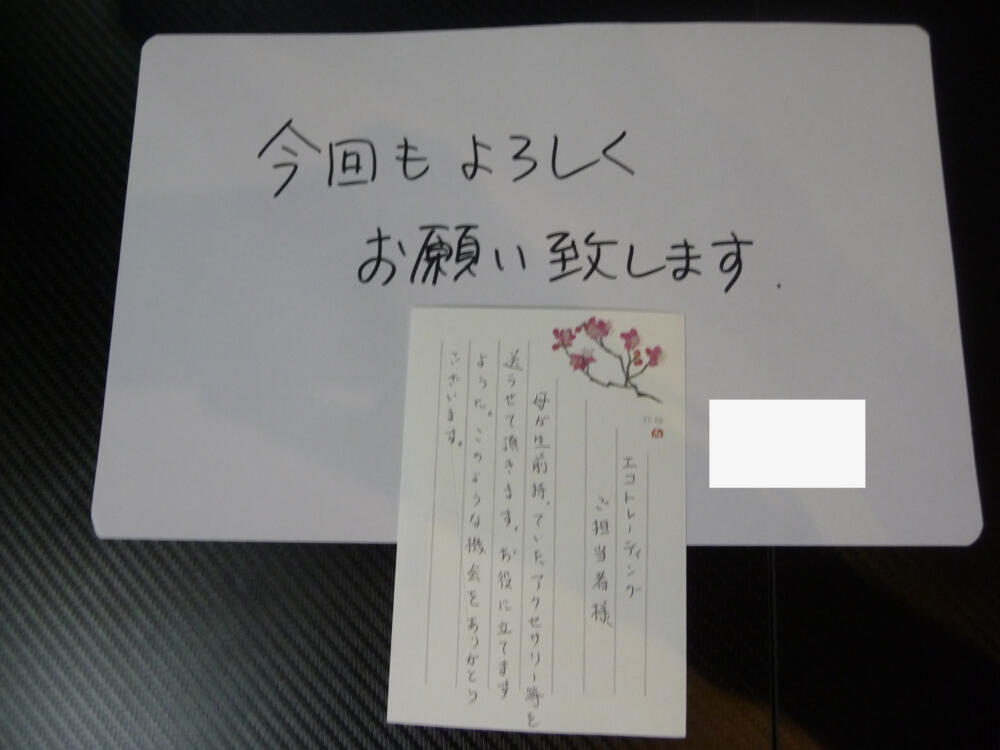 今回もよろしく
お願い致します.
エコトレーディング
ご担当者様
母が生前持っていたアクセサリー等を
送らせて頂きます。お役に立てます
ように。このような機会をありがとう
ございます。